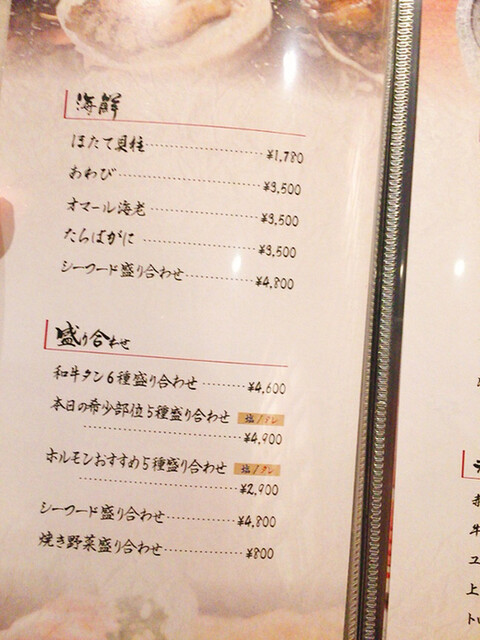 海鮮
ほたて貝柱 ¥1,780
あわび ¥3,500
オマール海老 ¥3,500
たらばがに ¥3,500
シーフード盛り合わせ ¥4,800
盛り合わせ
和牛タン6種盛り合わせ ¥4,600
本日の希少部位5種盛り合わせ 塩/タレ
¥4,900
ホルモンおすすめ5種盛り合わせ 塩/タレ
¥2,900
シーフード盛り合わせ ¥4,800
焼き野菜盛り合わせ ¥800
牛
ユ
上
トゥ